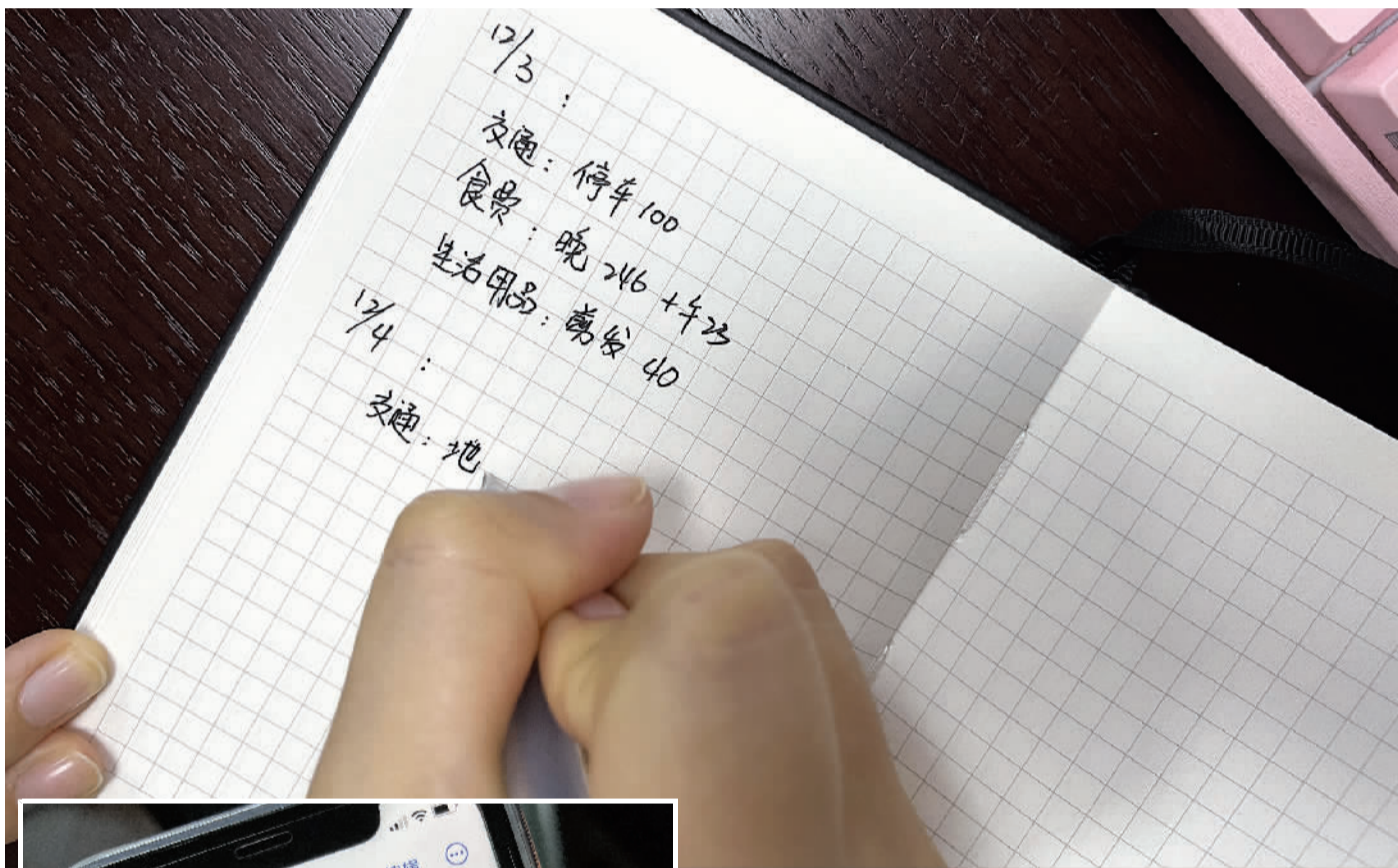 12/3：
交通：停车100
食费：晚246＋午23
生活用品：剪发40
12/4：
交通：地